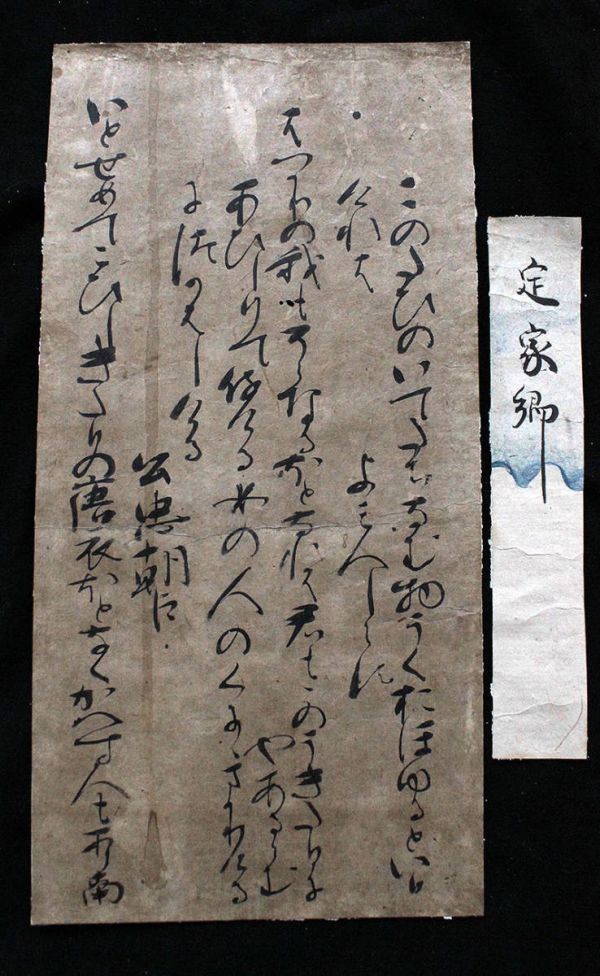 このたひのいてたちなむ物うくおほゆるといひ
けれは
よみ人しらす
はつかりの我もそらなるほとなれは君もものうきたひに
やあるらむ
あひしりて侍ける女の人のくにゝまかりける
につかはしける
公忠朝臣
いとせめてこひしきたひの唐衣ほとなくかへす人もあらなん
定家卿